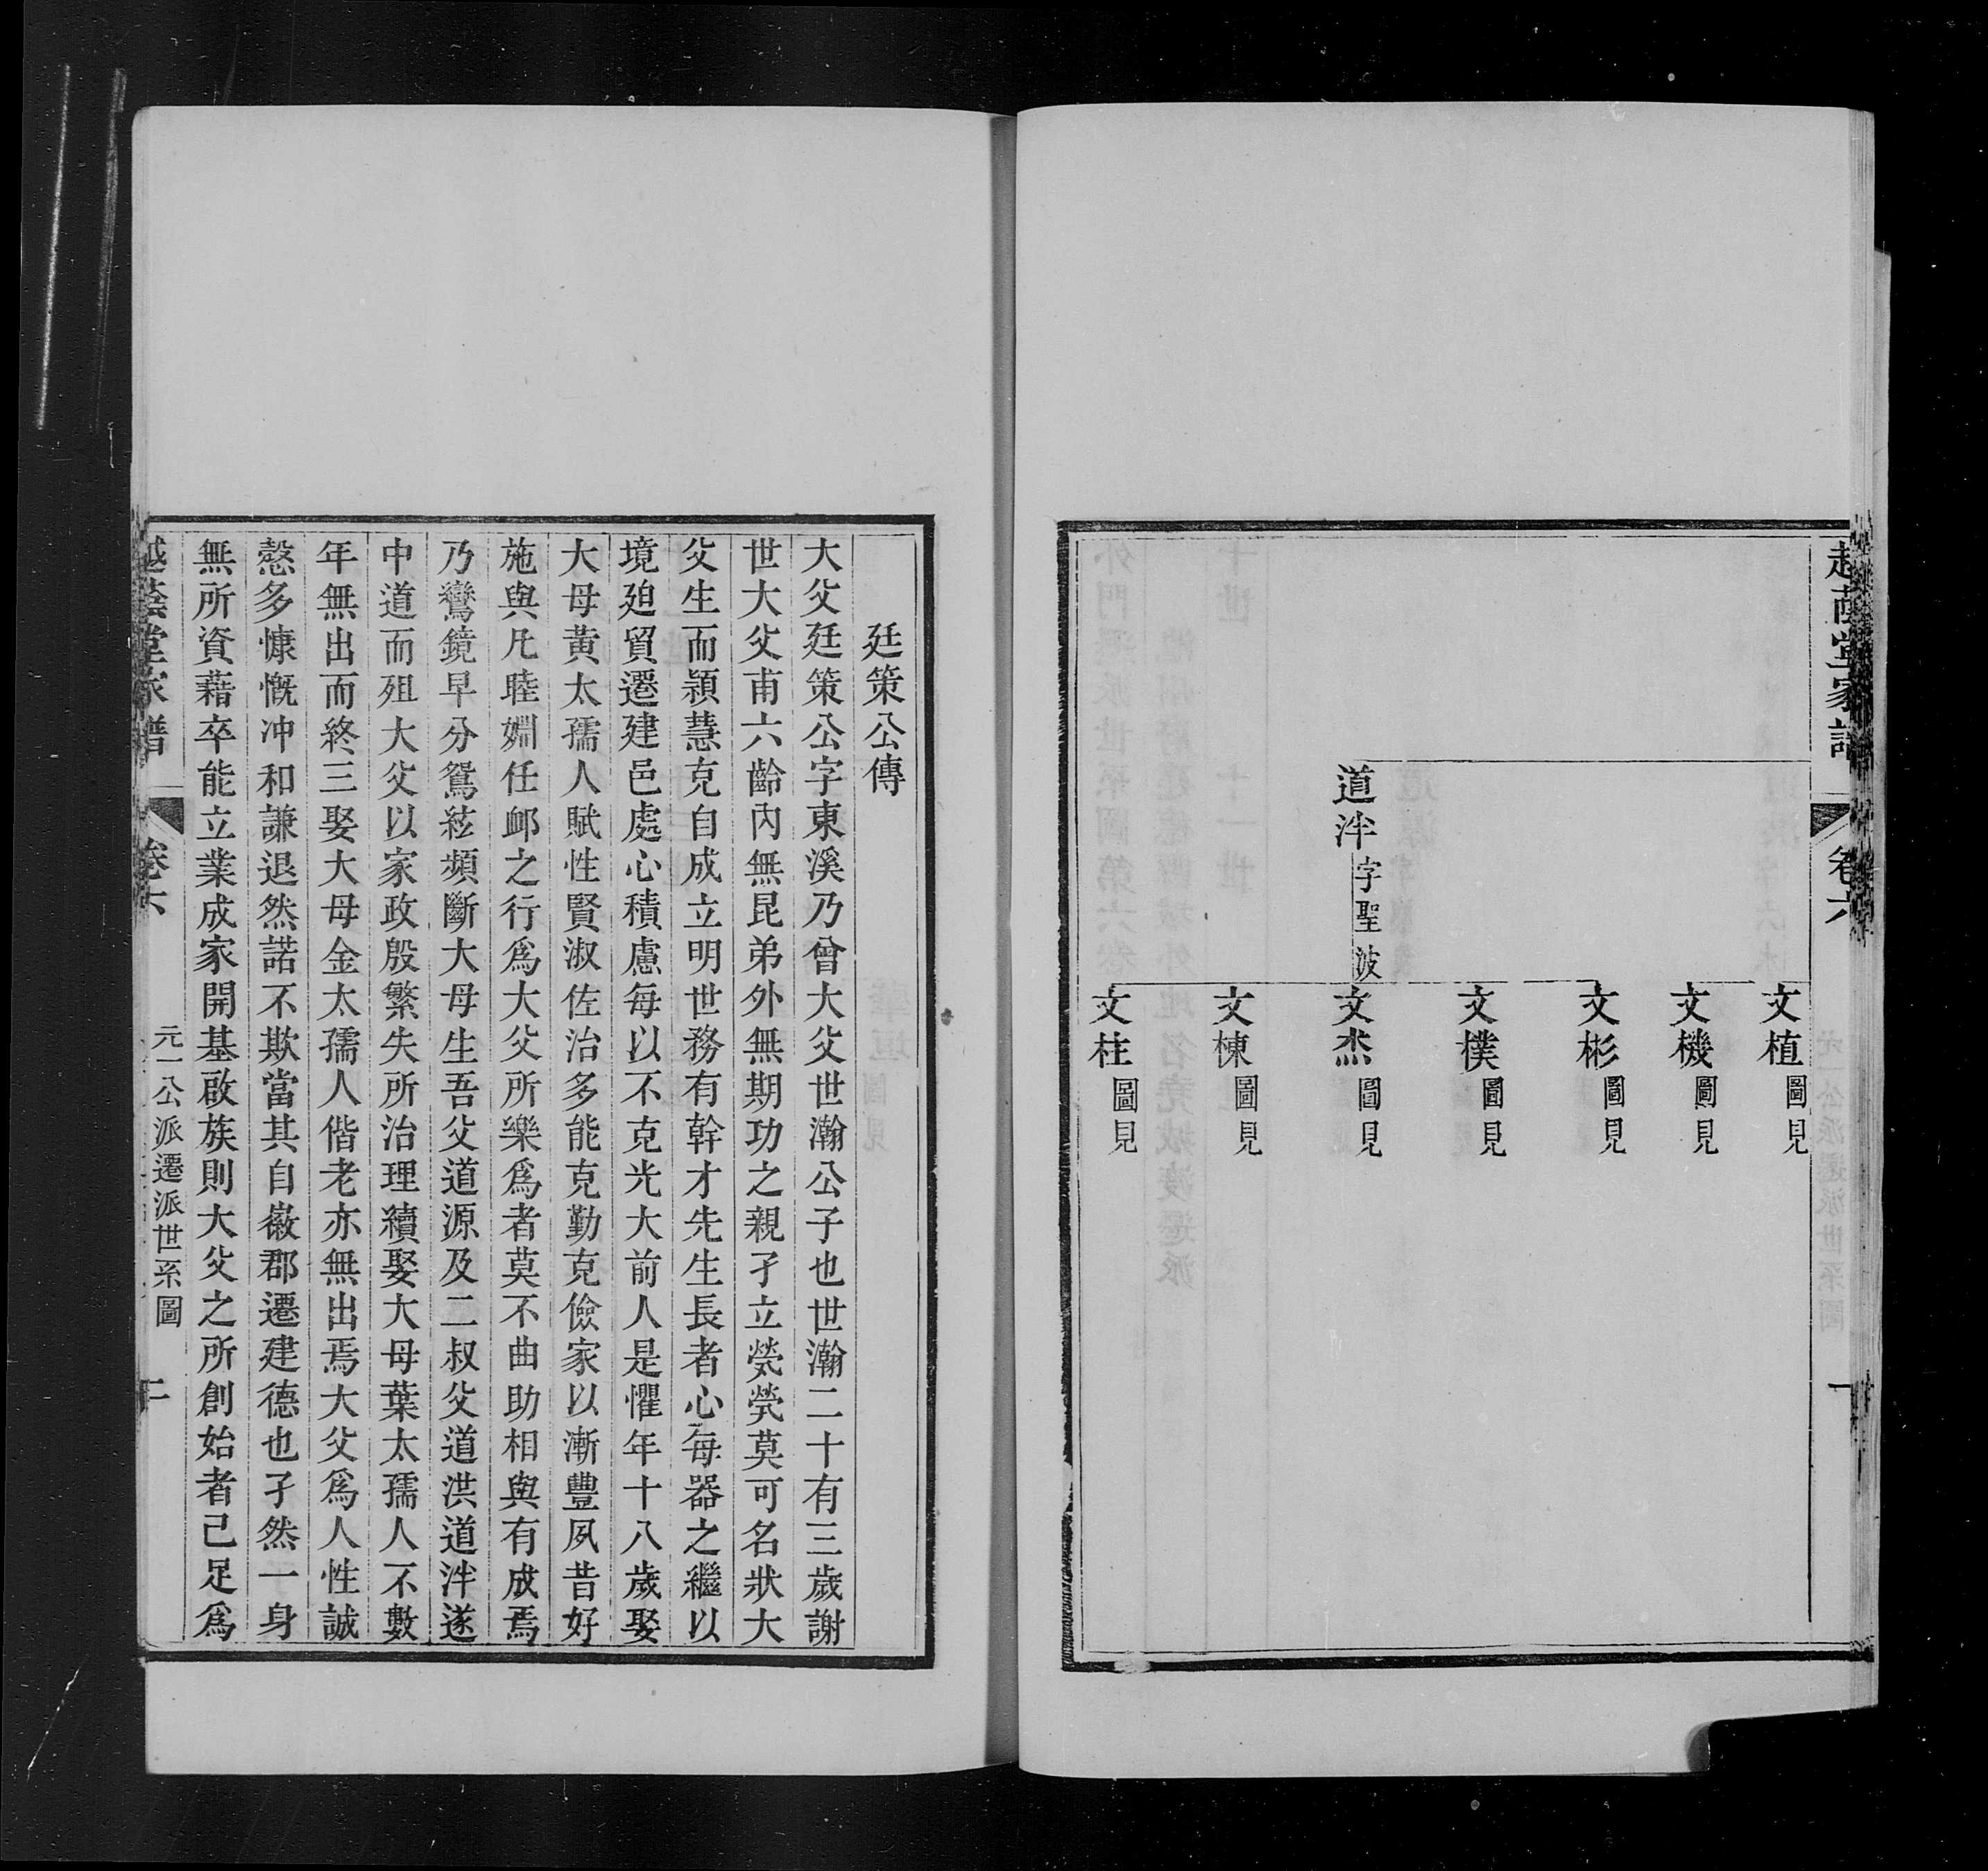 越蔭堂家譜 卷六 一
文植 圖見
文機 圖見
道泮 字聖波
文彬 圖見
文樸 圖見
文杰 圖見
文棟 圖見
文柱 圖見
廷策公傳
大父廷策公字東溪乃曾大父世瀚公子也世瀚二十有三歲謝
世大父甫六齡內無昆弟外無期功之親孑立煢煢莫可名狀大
父生而穎慧克自成立明世務有幹才先生長者心每器之繼以
境廹貿遷建邑處心積慮每以不克光大前人是懼年十八歲娶
大母黃太孺人賦性賢淑佐治多能克勤克儉家以漸豐夙昔好
施與凡睦婣任卹之行爲大父所樂爲者莫不曲助相與有成焉
乃鸞鏡早分鴛絃頻斷大母生吾父道源及二叔父道洪道泮遂
中道而殂大父以家政殷繁失所治理續娶大母葉太孺人不數
年無出而終三娶大母金太孺人偕老亦無出焉大父爲人性誠
慤多慷慨冲和謙退然諾不欺當其自徽郡遷建德也孑然一身
無所資藉卒能立業成家開基啟族則大父之所創始者已足爲
越蔭堂家譜 卷六 元一公派遷派世系圖 二